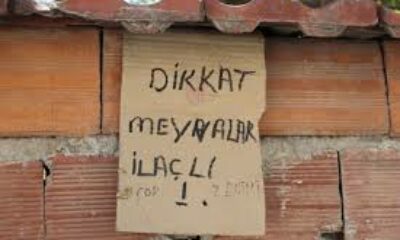 DİKKAT
MEYVALAR
İLAÇLI
!.